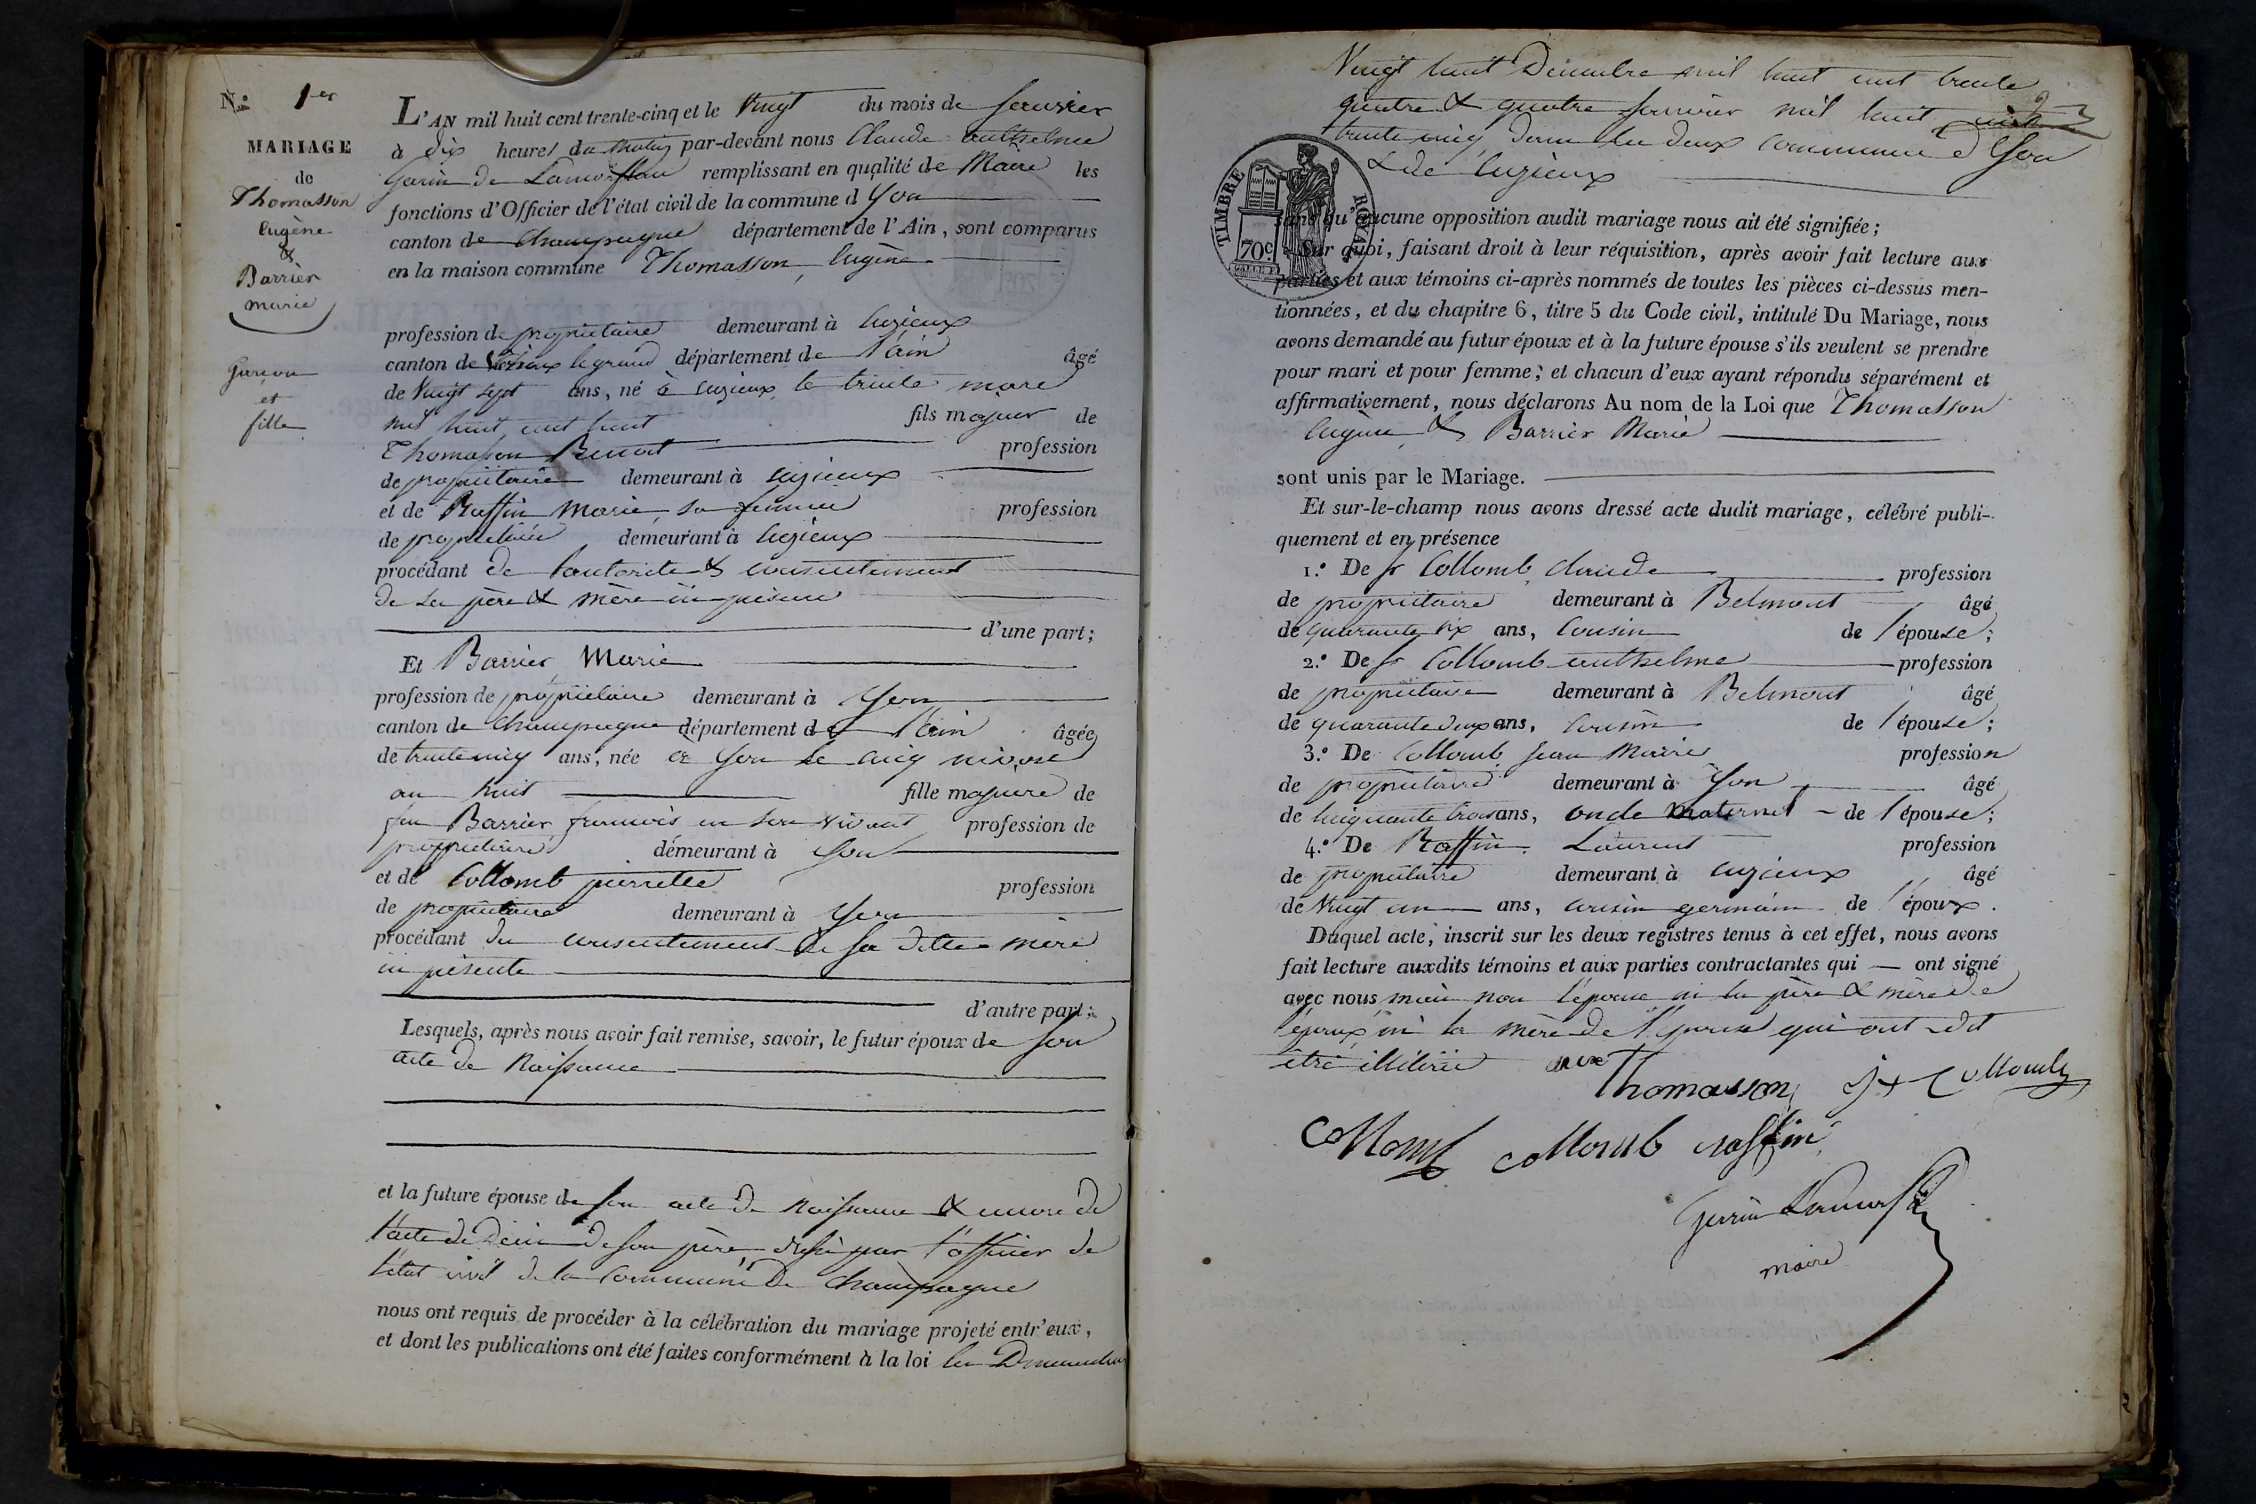 N.° 1er
MARIAGE
de
Thomasson
Eugène
&
Barrier
marie
Garçon
et
fille
L'AN mil huit cent trente-cinq et le Vingt du mois de Janvier
à dix heures du matin par-devant nous Claude anthelme
remplissant en qualité de Maire les
fonctions d'Officier de l'état civil de la commune d Yon
canton de Champagne département de l'Ain, sont comparus
en la maison commune Thomasson, Eugène
profession de propriétaire demeurant à Cuzieux
canton de le grand département de l'ain âgé
de Vingt sept ans, né à Cuzieux le trente mars
mil huit cent huit fils majeur de
Thomasson Benoit profession
de propriétaire demeurant à Cuzieux
et de Raffin Marie, sa femme profession
de propriétaire demeurant à Cuzieux
procédant de l'autorité & consentement
de ses père & mère ici présens
d'une part;
Et Barrier Marie
profession de propriétaire demeurant à Yon
canton de Champagne département de l'ain âgée
de trente cinq ans, née à Yon le cinq nivose
an huit fille majeure de
feu Barrier françois en son vivant profession de
propriétaire demeurant à Yon
et de Collomb pierrette profession
de propriétaire demeurant à Yon
procédant du consentement de sa ditte mère
ici présente
d'autre part;
Lesquels, après nous avoir fait remise, savoir, le futur époux de son
acte de Naissance
et la future épouse de son acte de Naissance & encore de
l'acte de décès de son père, dressé par l'officier de
l'état civil de la commune de Champagne
nous ont requis de procéder à la célébration du mariage projeté entr'eux,
et dont les publications ont été faites conformément à la loi les Dimanches
Vingt huit Décembre mil huit cent trente
quatre & quatre janvier mil huit cent
trente cinq, dans les deux communes d'Yon
& de Cuzieux
TIMBRE ROYAL
70c
sans qu'aucune opposition audit mariage nous ait été signifiée;
Sur quoi, faisant droit à leur réquisition, après avoir fait lecture aux
parties et aux témoins ci-après nommés de toutes les pièces ci-dessus men-
tionnées, et du chapitre 6, titre 5 du Code civil, intitulé Du Mariage, nous
avons demandé au futur époux et à la future épouse s'ils veulent se prendre
pour mari et pour femme; et chacun d'eux ayant répondu séparément et
affirmativement, nous déclarons Au nom de la Loi que Thomasson
Eugène & Barrier Marie
sont unis par le Mariage.
Et sur-le-champ nous avons dressé acte dudit mariage, célébré publi-
quement et en présence
1.° De sr Collomb, claude profession
de propriétaire demeurant à Belmont âgé
de quarante six ans, Cousin de l'épouse;
2.° De sr Collomb anthelme profession
de propriétaire demeurant à Belmont âgé
de quarante deux ans, cousin de l'épouse;
3.° De Collomb, Jean Marie profession
de propriétaire demeurant à Yon âgé
de Cinquante trois ans, oncle maternel de l'épouse;
4.° De Raffin Laurent profession
de propriétaire demeurant à Cuzieux âgé
de Vingt un ans, cousin germain de l'époux.
Duquel acte, inscrit sur les deux registres tenus à cet effet, nous avons
fait lecture auxdits témoins et aux parties contractantes qui ont signé
avec nous maire non l'épouse ni les père & mère de
l'époux, ni la mère de l'épouse qui ont dit
être illitérés
Thomasson j + Collomb
collomb collomb raffin
maire